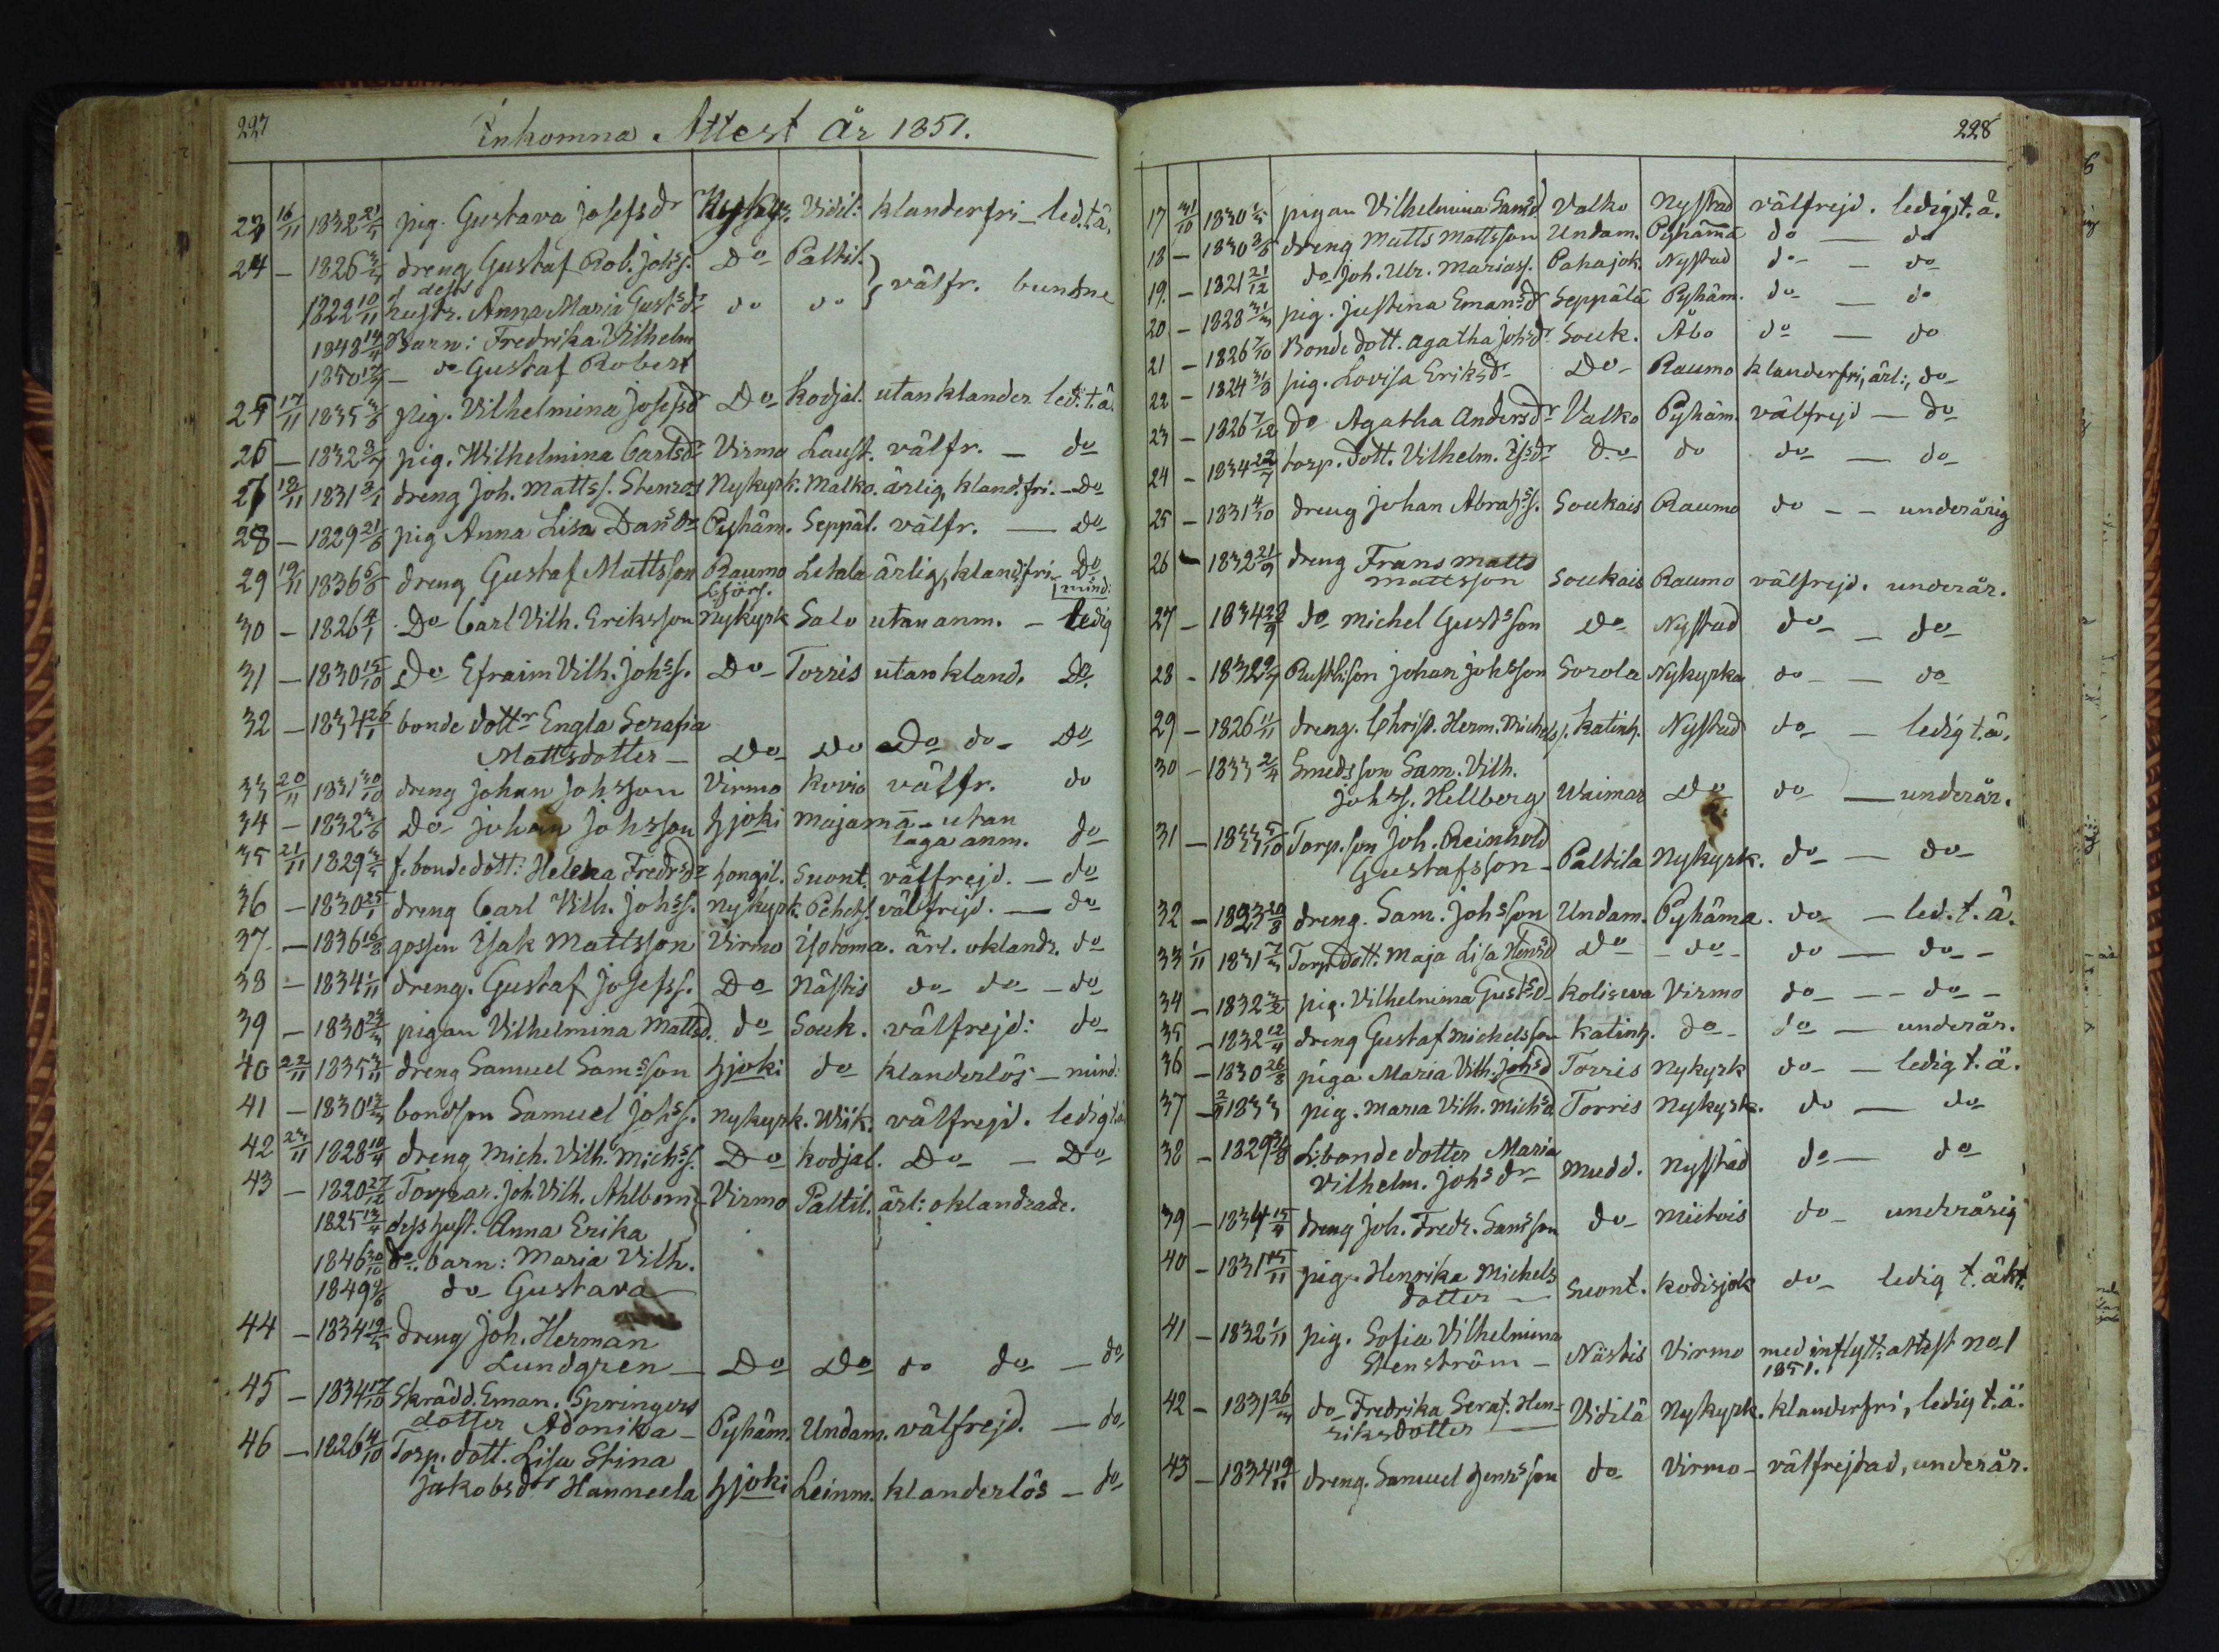 227
Inkomna Attest År 1851.
23 16/11 1832 21/1 pig. Gustava Josefsdr Nykyr. Vidil. klanderfri – led.t.ä.
24 – 1826 dreng Gustaf Rob. Johss. Do Paltil.
1822 10/11 dess hustr. Anna Maria Gustsdr do do } välfr. bundne
1848 14/4 Barn: Fredrika Vilhelm
1850 – do Gustaf Robert
25 17/11 1835 pig. Vilhelmina Josefsdr Do Kodjal. utan klander led.t.ä.
26 – 1832 pig. Wilhelmina Carlsdr Virmo Laust. välfr. – do
27 18/11 1831 dreng Joh. Mattss. Stenros Nykyrk. Malko. ärlig, kland.fri. – Do
28 – 1829 21/8 pig Anna Lisa Dansdr Pyhäm. Seppäl. välfr. – Do
29 19/11 1836 dreng Gustaf Mattsson Raumo Letala ärlig, klandfri Do
mind:
30 – 1826 4/1 Do Carl Vilh. Eriksson Nykyrk Salo utan anm. – ledig
31 – 1830 15/10 Do Efraim Vilh. Johss. Do – Torris utan kland. Do.
32 – 1834 26/1 bonde dottr Engla Serafia
Mattsdotter – Do Do Do do – Do
33 20/11 1831 30/10 dreng Johan Johsson Virmo Kovio välfr. do
34 – 1832 Do Johan Johsson Hjoki Majamä – utan
laga anm. do
35 21/11 1829 f. bondedott: Helena Fredrsdr Hongil. Suont. välfrejd. – do
36 – 1830 25/1 dreng Carl Vilh. Johss. Nykyrk. Pehets. välfrejd. – do
37 – 1836 16/8 gossen Isak Mattsson Virmo Isotoma. ärl. oklandr. do
38 – 1834 1/11 dreng. Gustaf Josefss. Do Nästis do do – do
39 – 1830 pigan Vilhelmina Mattsd. do Souk. välfrejd: do
40 22/11 1835 dreng Samuel Samsson Hjoki do klanderlös – mind:
41 – 1830 bondson Samuel Johss. Nykyrk. Wiik. välfrejd. ledig t.ä.
42 23/11 1828 10/4 dreng Mich. Vilh. Michss. Do Kodjal. Do – Do
43 – 1820 27/12 Torpar. Joh. Vilh. Ahlbom Virmo Paltil. ärl: oklandrade.
1825 13/4 dess hust. Anna Erika
1846 30/10 do. barn: Maria Vilh.
1849 do Gustava
44 – 1834 dreng Joh. Herman
Lundgren – Do Do do do – do
45 – 1834 17/10 Skrädd. Eman. Springers
dotter Adonika – Pyhäm. Undam. välfrejd. – do
46 – 1826 4/10 Torp. dott. Lisa Stina
Jakobsdr Hanneela Hjoki Leinm. klanderlös – do
228
17 31/10 1830 pigan Vilhelmina Samsd Valko Nystad välfrejd. ledig t.ä.
18 – 1830 dreng Matts Mattsson Undam. Pyhämä do – do
19. – 1821 21/12 do Joh. Ulr. Mariass. Pahajok. Nystad do – do
20 – 1828 31/3 pig. Justina Emansdr Seppälä Pyhäm. do – do
21 – 1826 7/10 Bondedott. Agatha Johsdr Souk. Åbo do – do
22 – 1824 31/8 pig. Lovisa Eriksdr Do – Raumo klanderfri, ärl:, do
23 – 1826 7/12 Do Agatha Andersdr Valko Pyhäm. välfrejd – do
24 – 1834 22/7 torp. dott. Vilhelm. Isdr Do do do – do
25 – 1831 4/10 dreng Johan Abrahss. Soukais Raumo do – – underårig
26 – 1832 21/9 dreng Frans Matts
Mattsson Soukais Raumo välfrejd. underår.
27 – 1834 29/9 do Michel Gustsson Do Nystad do – do
28 – 1832 Rusth:son Johan Johsson Sorola Nykyrka do – do
29 – 1826 11/11 dreng. Christ. Herm. Michelss. Katinh. Nystad do – ledig t.ä.
30 – 1833 2/4 Smedsson Sam. Vilh.
Johss. Hellberg Waimar Do do – underår.
31 – 1833 5/10 Torp. son Joh. Reinhold
Gustafsson – Paltila Nykyrk. do – do
32 – 1823 20/8 dreng. Sam. Johsson Undam. Pyhäma. do – led. t. ä.
33 1/11 1831 7/3 Torp. dott. Maja Lisa Hensd Do – do – do – do –
34 – 1832 pig. Vilhelmina Gustsd Koliswa Virmo do – – do –
35 – 1832 12/4 dreng Gustaf Michelsson Katinh. do – do – underår.
36 – 1830 26/8 piga Maria Vilh. Johsd Torris Nykyrk do – ledig t.ä.
37 – 2/11 1833 pig. Maria Vilh. Michsd Torris Nykyrk. do – do
38 – 1829 31/8 L:bonde dotter Maria
Vilhelm. Johsdr Mudd. Nystad do – do
39 – 1834 15/4 dreng Joh. Fredr. Samsson do – Mietois do – underårig
40 – 1831 15/11 pig. Henrika Michels
dotter – Suont. Kodisjok do – ledig t. äkt.
41 – 1832 1/11 pig. Sofia Vilhelmina
Stenström – Nästis Virmo med inflytt: attest no 1
1851.
42 – 1831 26/3 do Fredrika Seraf. Hen-
riksdotter – Vidilä Nykyrk. klanderfri, ledig t.ä.
43 – 1834 19/11 dreng. Samuel Henrsson do Virmo – välfrejdad, underår.